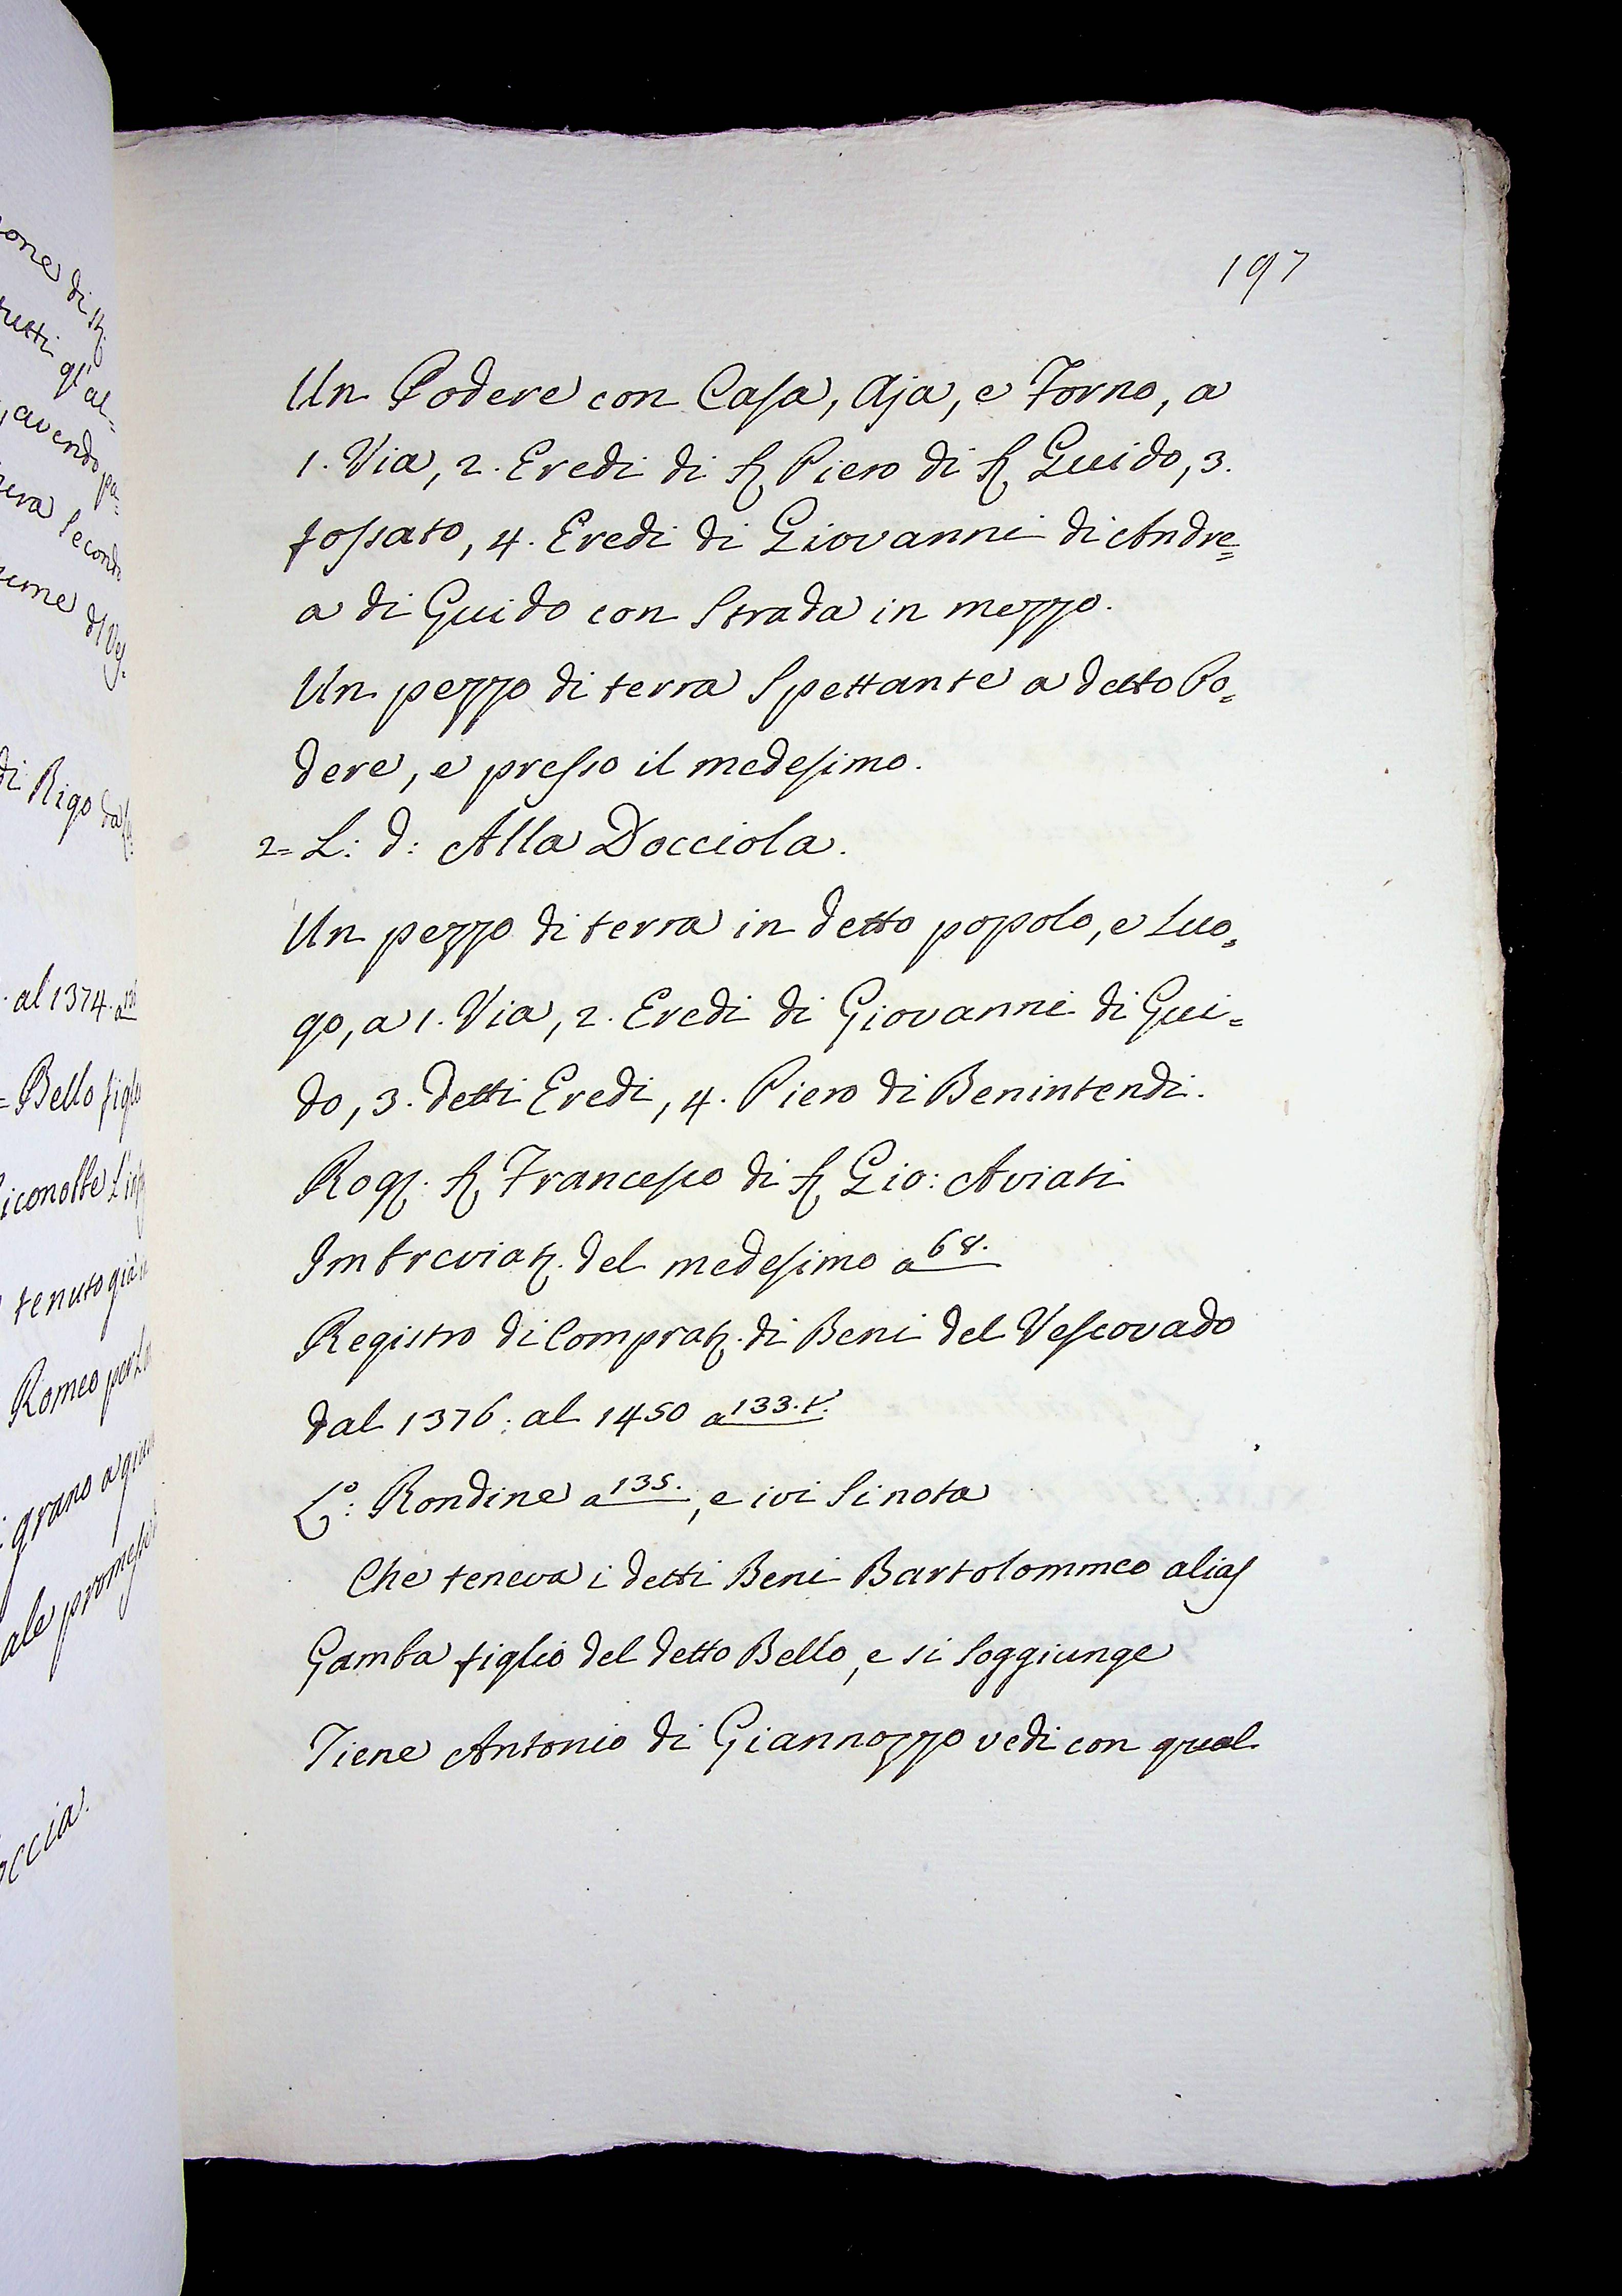 197
Un Podere con Casa, Aja, e Forno, a
1. Via, 2. Eredi di S. Piero di S. Guido, 3.
fossato, 4. Eredi di Giovanni di Andre=
a di Guido con Strada in mezzo.
Un pezzo di terra Spettante a detto Po=
dere, e presso il medesimo.
2= L: d: Alla Docciola.
Un pezzo di terra in detto popolo, e Luo=
go, a 1. Via, 2. Eredi di Giovanni di Gui=
do, 3. detti Eredi, 4. Piero di Benintendi.
Rog. S. Francesco di S. Gio: Aviati
Imbreviat. del medesimo a 68.
Registro di Comprat. di Beni del Vescovado
dal 1376. al 1450 a 133.t.
L.º: Rondine a 135., e ivi Si nota
Che teneva i detti Beni Bartolommeo alias
Gamba figlio del detto Bello, e si Soggiunge
Tiene Antonio di Giannozzo vedi con qual
di Rigo da
al 1374. a
= Bello figlio
tenuto già
Romeo per
grano a
ale